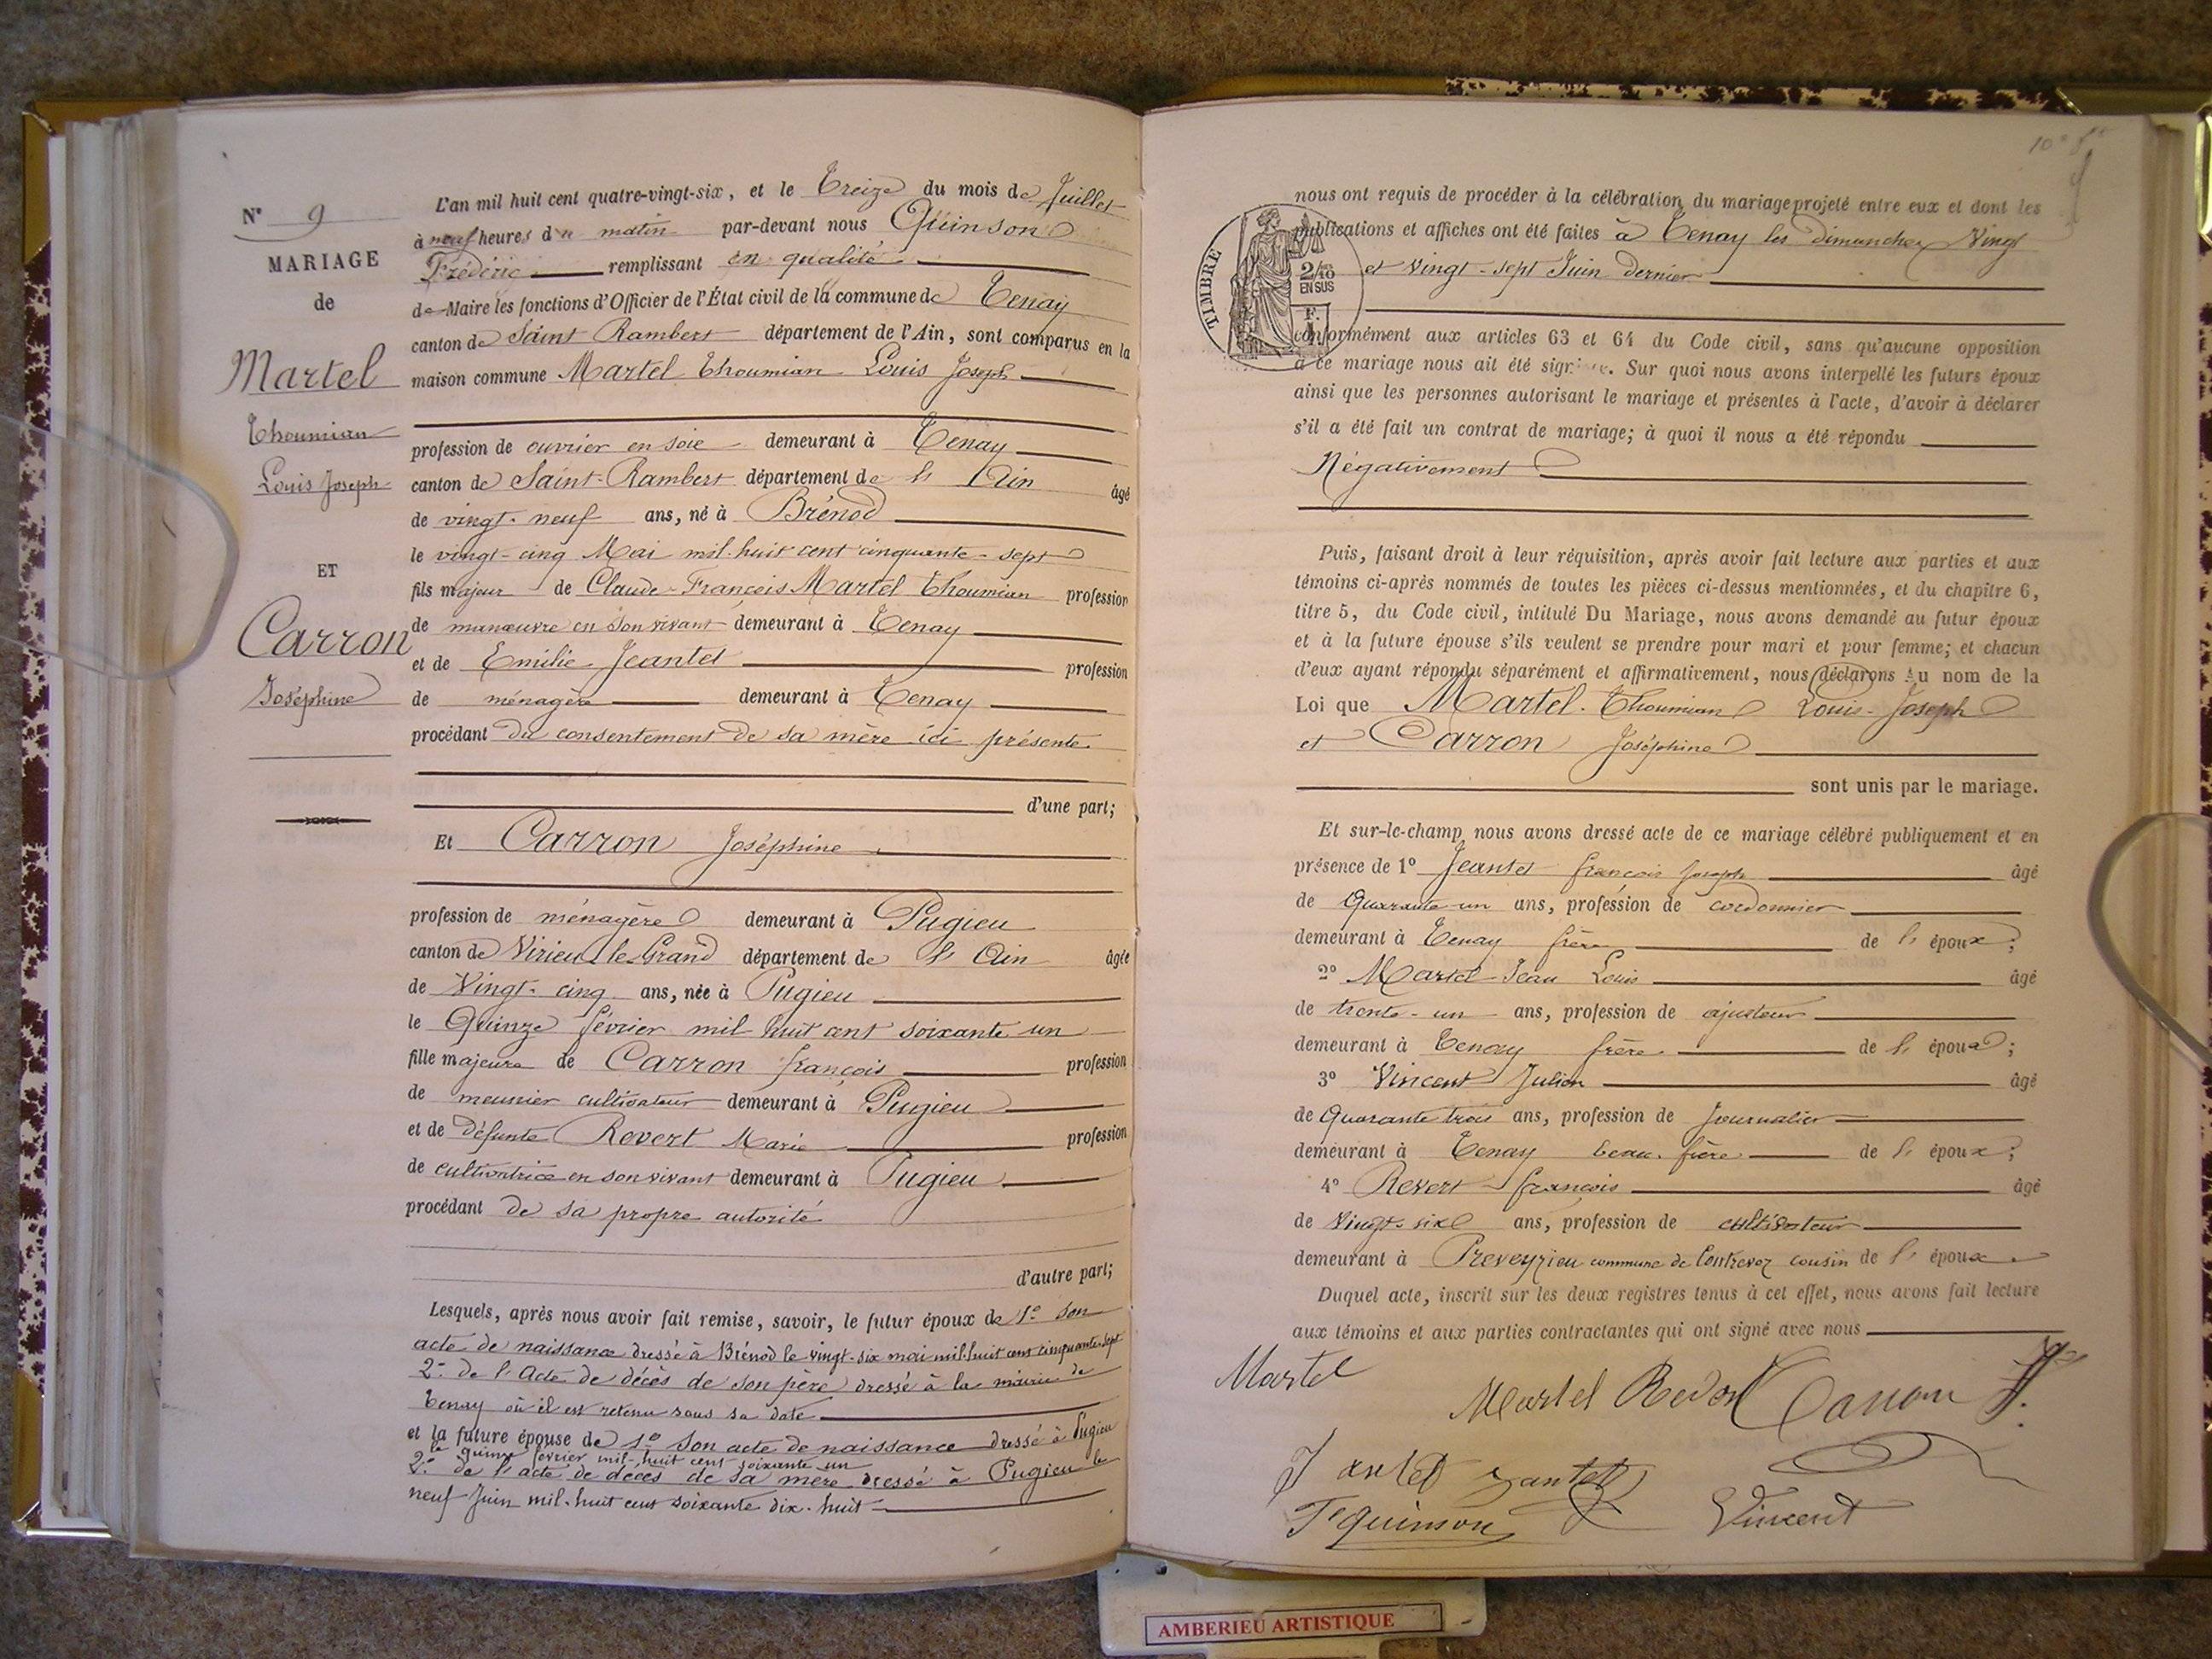 N° 9
MARIAGE
de
Martel
Thoumian
Louis Joseph
ET
Carron
Joséphine
L'an mil huit cent quatre-vingt-six, et le Treize du mois de Juillet
à neuf heures du matin par-devant nous Quinson
Frédéric remplissant en qualité
de Maire les fonctions d'Officier de l'État civil de la commune de Tenay
canton de Saint Rambert département de l'Ain, sont comparus en la
maison commune Martel Thoumian Louis Joseph
profession de ouvrier en soie demeurant à Tenay
canton de Saint-Rambert département de l' Ain âgé
de vingt-neuf ans, né à Brénod
le vingt-cinq Mai mil-huit cent cinquante-sept
fils majeur de Claude-François Martel Thoumian profession
de manœuvre en son vivant demeurant à Tenay
et de Emilie Jeantet profession
de ménagère demeurant à Tenay
procédant du consentement de sa mère ici présente
d'une part;
Et Carron Joséphine
profession de ménagère demeurant à Pugieu
canton de Virieu-le-Grand département de l' Ain âgée
de Vingt-cinq ans, née à Pugieu
le Quinze février mil huit cent soixante un
fille majeure de Carron françois profession
de meunier cultivateur demeurant à Pugieu
et de défunte Revert Marie profession
de cultivatrice en son vivant demeurant à Pugieu
procédant de sa propre autorité
d'autre part;
Lesquels, après nous avoir fait remise, savoir, le futur époux de 1° son
acte de naissance dressé à Brénod le vingt-six mai mil-huit cent cinquante-sept
2° de l'Acte de décès de son père dressé à la mairie de
Tenay où il est retenu sous sa date
et la future épouse de 1° Son acte de naissance dressé à Pugieu
le quinze février mil-huit cent soixante un
2° de l'acte de décès de sa mère dressé à Pugieu le
neuf Juin mil-huit cent soixante dix-huit
nous ont requis de procéder à la célébration du mariage projeté entre eux et dont les
publications et affiches ont été faites à Tenay les dimanches Vingt
et Vingt-sept Juin dernier
TIMBRE
2/10
EN SUS
conformément aux articles 63 et 64 du Code civil, sans qu'aucune opposition
à ce mariage nous ait été signifiée. Sur quoi nous avons interpellé les futurs époux
ainsi que les personnes autorisant le mariage et présentes à l'acte, d'avoir à déclarer
s'il a été fait un contrat de mariage; à quoi il nous a été répondu
Négativement
Puis, faisant droit à leur réquisition, après avoir fait lecture aux parties et aux
témoins ci-après nommés de toutes les pièces ci-dessus mentionnées, et du chapitre 6,
titre 5, du Code civil, intitulé Du Mariage, nous avons demandé au futur époux
et à la future épouse s'ils veulent se prendre pour mari et pour femme; et chacun
d'eux ayant répondu séparément et affirmativement, nous déclarons Au nom de la
Loi que Martel-Thoumian Louis-Joseph
et Carron Joséphine
sont unis par le mariage.
Et sur-le-champ nous avons dressé acte de ce mariage célébré publiquement et en
présence de 1° Jeantet françois Joseph âgé
de Quarante-un ans, profession de cordonnier
demeurant à Tenay frère de l' époux;
2° Martel Jean Louis âgé
de trente-un ans, profession de ajusteur
demeurant à Tenay frère de l' époux;
3° Vincent Julien âgé
de Quarante trois ans, profession de Journalier
demeurant à Tenay beau-frère de l' époux;
4° Revert françois âgé
de Vingt-six ans, profession de cultivateur
demeurant à Preveyzieu commune de Contrevoz cousin de l' époux
Duquel acte, inscrit sur les deux registres tenus à cet effet, nous avons fait lecture
aux témoins et aux parties contractantes qui ont signé avec nous
Martel
Martel Carron J.
Jantet
Fc Quinson Vincent
AMBERIEU ARTISTIQUE